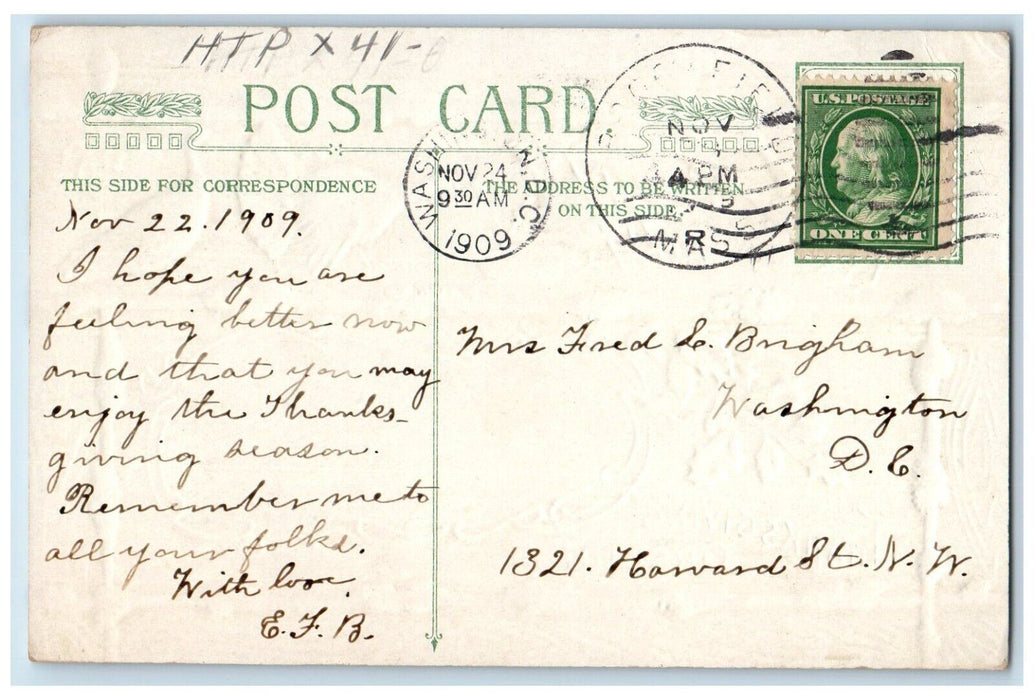 HTP X 41-
POST CARD
THIS SIDE FOR CORRESPONDENCE
THE ADDRESS TO BE WRITTEN
ON THIS SIDE
WASHINGTON, D.C.
NOV 24
9 30 AM
1909
NOV
4 PM
MASS
R
U.S. POSTAGE
ONE CENT
Nov 22. 1909.
I hope you are
feeling better now
and that you may
enjoy the Thanks-
giving season.
Remember me to
all your folks.
With love,
E. F. B.
Mrs Fred E. Brigham
Washington
D. C.
1321. Harvard St. N. W.